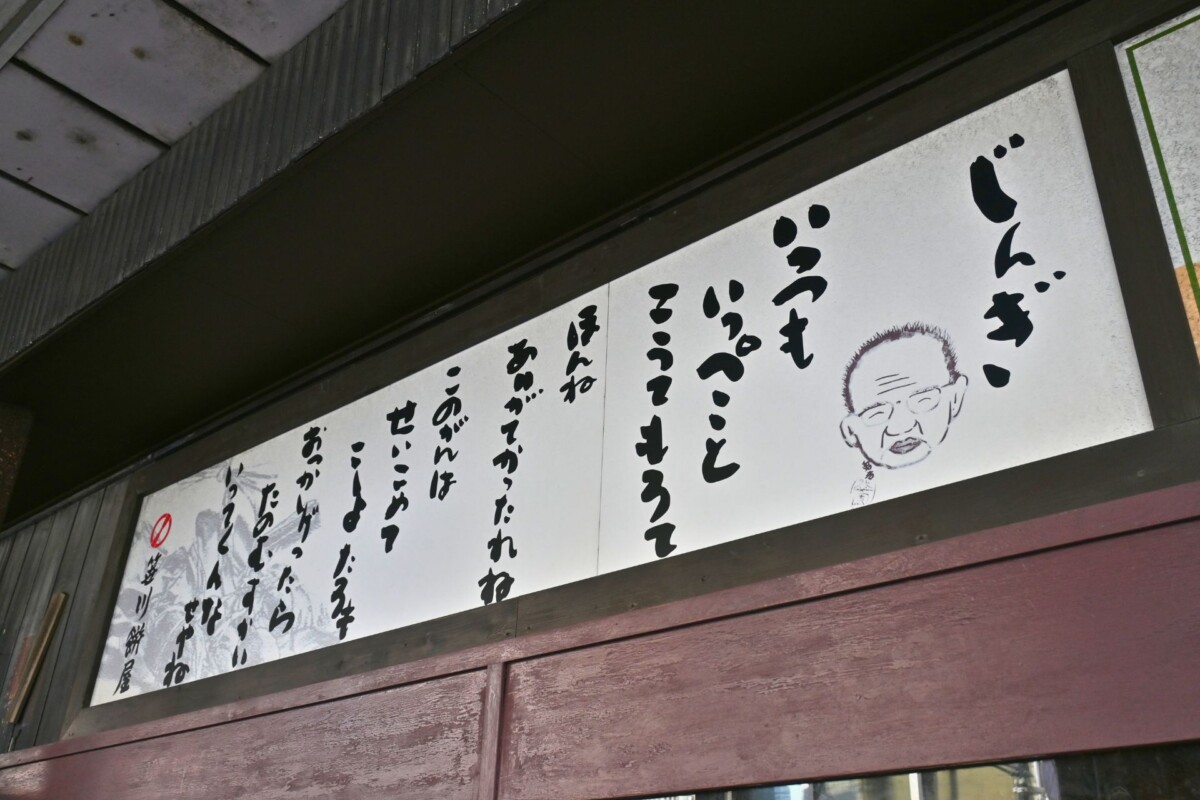 じんぎ、
いつも
いっぺこと
こうてもろて
ほんね
ありがてかったれね
このがんは
せいこめて
こしょたろも
おっかしげったら
たのむすかい
いってくんな
せやね
笹川餅屋